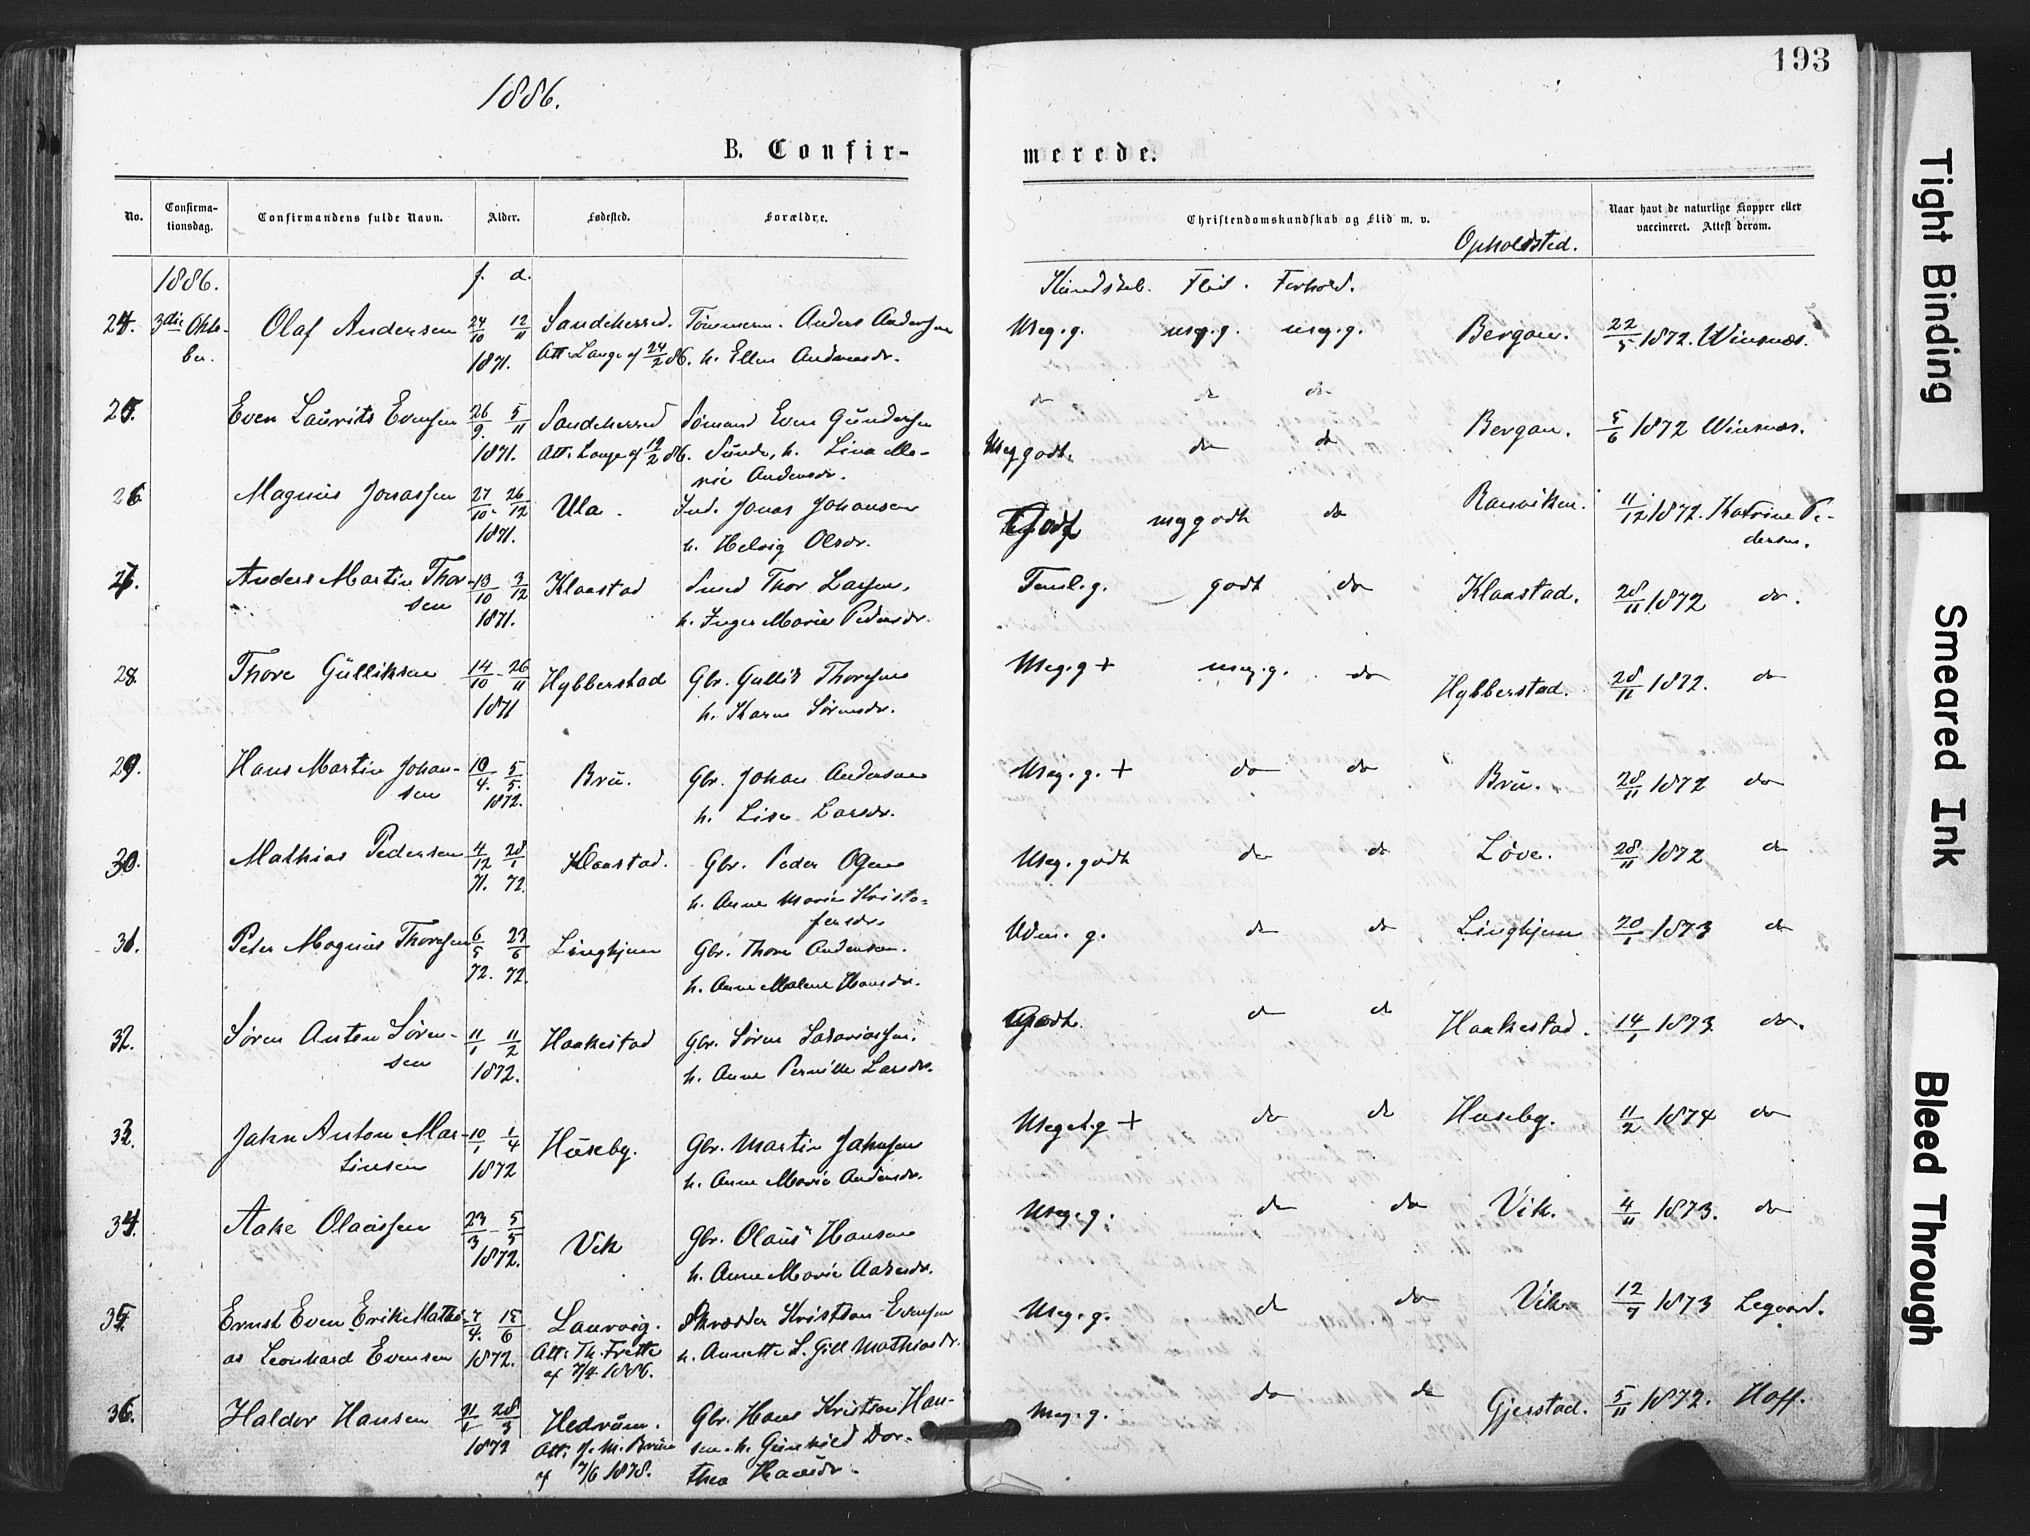 1886.
193
B. Confir-
merede.
No.
Confirma-
tionsdag.
Confirmandens fulde Navn.
Alder.
Fødested.
Forældre.
Christendomskundskab og Flid m. v.
Opholdsted.
Naar havt de naturlige Kopper eller
vaccineret. Attest derom.
1886.
f. d.
Kundskab. Flid. Forhold.
24. 3die Okto- Olaf Andersen 24/10 12/11 Sandeherred. Tømmerm. Anders Andersen Meg. g. meg. g. meg. g. Bergan. 22/5 1872. Winsnæs.
ber. 1871. Att. Lange af 24/2 86. h. Ellen Andersdr.
do do do
25. Even Laurits Evensen 26/9. 5/11 Sandeherred Sømand Even Gundersen Bergan. 5/6 1872 Winsnæs.
1871. Att. Lange af 19/2 86. Sunde, h. Lina Ma- Meg godt. do do
rie Andersdr.
26 Magnus Jonassen 27/10. 26/12 Ula. Ind. Jonas Johansen Godt meg godt do Ranviken. 11/12 1872. Katrine Pe-
1871. h. Helvig Olsdr. dersen.
27. Anders Martin Thor- 13/10 3/12 Klaastad Smed Thor Larsen, Teml. g. godt do Klaastad. 28/11 1872 do.
sen 1871. h. Inger Marie Pedersdr.
28. Thore Gulliksen 14/10 - 26/11 Hybberstad Gbr. Gullik Thoresen Meg. g + meg. g. do Hybberstad. 28/11 1872. do
1871 h. Karen Sørensdr.
29. Hans Martin Johan- 10/4. 5/5. Bru. Gbr. Johan Andersen Meg. g. + do do Bru. 28/11 1872 do
sen 1872. h. Lise Larsdr.
30. Mathias Pedersen 4/12 28/1 Klaastad. Gbr. Peder Olsen Meg. godt do do Løve. 28/11 1872 do
71. 72. h. Anne Marie Kristo-
fersdr.
31. Peter Magnus Thoresen 6/5 23/6 Linghjem Gbr. Thore Andersen. Udm. g. do do Linghjem 20/1 1873 do
72. 72. h. Anne Malene Hansdr.
32. Søren Anton Søren- 11/1 11/2 Haakestad Gbr. Søren Sakariassen. Godt. do do Haakestad. 14/1 1873 do.
sen 1872. h. Anne Pernille Larsdr.
33. Jahn Anton Mar- 10/1 1/4 Huseby. Gbr. Martin Jahnsen Meget g + do do Huseby. 11/2 1874 do
tinsen 1872 h. Anne Marie Andersdr.
34. Aake Olaussen 23/3 - 5/5 Vik Gbr. Olaus Hansen Meg. g. do do Vik. 4/11 1873. do
1872. h. Anne Marie Aakesdr.
35. Ernst Even Erik Mathi- 7/4. 15/6 Laurvig. Skrædder Kristian Evensen Meg. g. do do Vik 12/7 1873 Legaard.
as Leonhard Evensen 1872. Att: Th. Frette h. Annette L. Gill Mathiasdr.
af 7/4 1886.
36. Haldor Hansen 21/1 28/3 Hedrum. Gbr. Hans Kristian Han- Meg. g. do do Gjerstad. 5/11 1872. Hoff.
1872 Att: J. M. Bruun sen h. Gunhild Dor-
af 7/6 1878. thea Hansdr.
Tight Binding
Smeared Ink
Bleed Through